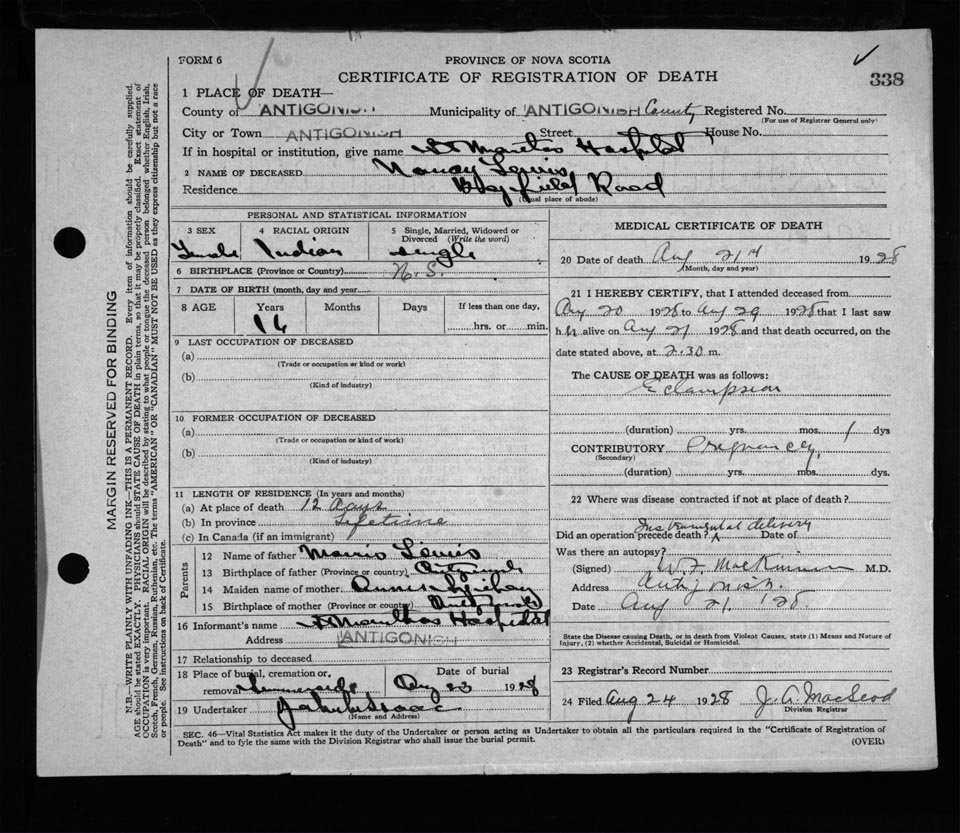 FORM 6
PROVINCE OF NOVA SCOTIA
CERTIFICATE OF REGISTRATION OF DEATH
338
1 PLACE OF DEATH—
County of ANTIGONISH Municipality of ANTIGONISH County Registered No.
(For use of Registrar General only)
City or Town ANTIGONISH Street House No.
If in hospital or institution, give name St Marthas Hospital
2 NAME OF DECEASED Nancy Lewis
Residence Bayfield Road
(Usual place of abode)
PERSONAL AND STATISTICAL INFORMATION
3 SEX 4 RACIAL ORIGIN 5 Single, Married, Widowed or Divorced (Write the word)
Female Indian single
6 BIRTHPLACE (Province or Country) N.S.
7 DATE OF BIRTH (month, day and year)
8 AGE Years Months Days If less than one day,
16 hrs. or min.
9 LAST OCCUPATION OF DECEASED
(a)
(Trade or occupation or kind or work)
(b)
(Kind of industry)
10 FORMER OCCUPATION OF DECEASED
(a)
(Trade or occupation or kind of work)
(b)
(Kind of industry)
11 LENGTH OF RESIDENCE (In years and months)
(a) At place of death 12 Days
(b) In province Lifetime
(c) In Canada (if an immigrant)
Parents
12 Name of father Lewis
13 Birthplace of father (Province or country)
14 Maiden name of mother Annie
15 Birthplace of mother (Province or country)
16 Informant's name St Marthas Hospital
Address ANTIGONISH
17 Relationship to deceased
18 Place of burial, cremation or removal Date of burial
Aug 23 1928
19 Undertaker John Isaac
(Name and Address)
MEDICAL CERTIFICATE OF DEATH
20 Date of death Aug 21st 1928
(Month, day and year)
21 I HEREBY CERTIFY, that I attended deceased from
Aug 20 1928 to Aug 1928 that I last saw
h alive on Aug 21 1928 and that death occurred, on the
date stated above, at 2.30 m.
The CAUSE OF DEATH was as follows:
Eclampsia
(duration) yrs. mos. 1 dys
CONTRIBUTORY Pregnancy
(Secondary)
(duration) yrs. mos. dys.
22 Where was disease contracted if not at place of death?
Instrumental delivery
Did an operation precede death? Date of
Was there an autopsy?
(Signed) W.F. MacKinnon M.D.
Address Antigonish.
Date Aug 21. '28.
State the Disease causing Death, or in death from Violent Causes, state (1) Means and Nature of
Injury, (2) whether Accidental, Suicidal or Homicidal.
23 Registrar's Record Number
24 Filed Aug 24 1928 J. A. MacLeod
Division Registrar
SEC. 46—Vital Statistics Act makes it the duty of the Undertaker or person acting as Undertaker to obtain all the particulars required in the "Certificate of Registration of
Death" and to fyle the same with the Division Registrar who shall issue the burial permit.
(OVER)
MARGIN RESERVED FOR BINDING
N.B.—WRITE PLAINLY WITH UNFADING INK—THIS IS A PERMANENT RECORD. Every item of information should be carefully supplied.
AGE should be stated EXACTLY. PHYSICIANS should STATE CAUSE OF DEATH in plain terms, so that it may be properly classified. Exact statement of
OCCUPATION is very important. RACIAL ORIGIN will be described by stating to what people or tongue the deceased person belonged whether English, Irish,
Scotch, French, German, Russian, Ruthenian, etc. The terms "AMERICAN" OR "CANADIAN" MUST NOT BE USED as they express citizenship but not a race
or people. See instructions on back of Certificate.